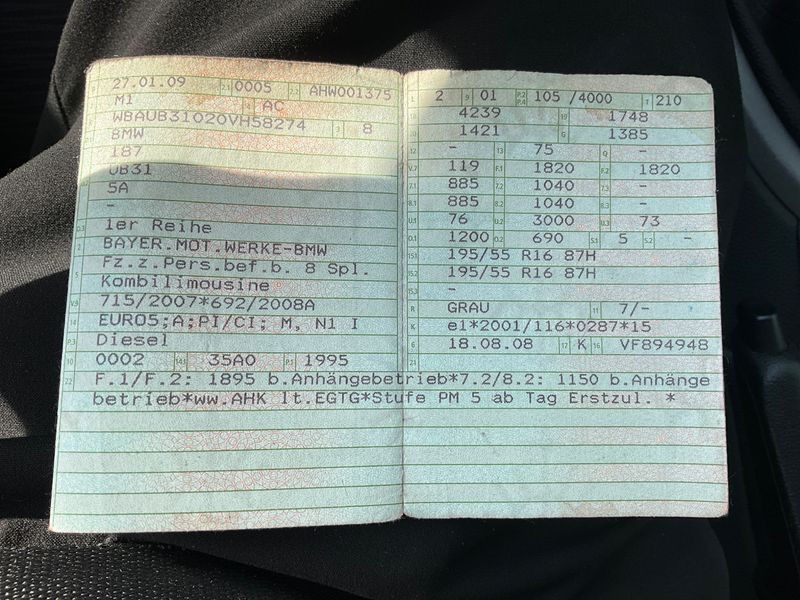 27.01.09 2.1 0005 2.2 AHW001375
M1 AC
WBAUB31020VH58274 3 8
BMW
187
UB31
5A
-
1er Reihe
BAYER.MOT.WERKE-BMW
Fz.z.Pers.bef.b. 8 Spl.
Kombilimousine
715/2007*692/2008A
EURO5;A;PI/CI; M, N1 I
Diesel
0002 35A0 P.1 1995
2 9 01 P.2 P.4 105 /4000 T 210
4239 19 1748
1421 G 1385
12 - 13 75 Q -
V.7 119 F.1 1820 F.2 1820
7.1 885 7.2 1040 7.3 -
8.1 885 8.2 1040 8.3 -
U.1 76 U.2 3000 U.3 73
O.1 1200 O.2 690 S.1 5 S.2 -
15.1 195/55 R16 87H
15.2 195/55 R16 87H
15.3 -
R GRAU 11 7/-
K e1*2001/116*0287*15
6 18.08.08 17 K 16 VF894948
21
22 F.1/F.2: 1895 b.Anhängebetrieb*7.2/8.2: 1150 b.Anhänge
betrieb*ww.AHK lt.EGTG*Stufe PM 5 ab Tag Erstzul. *